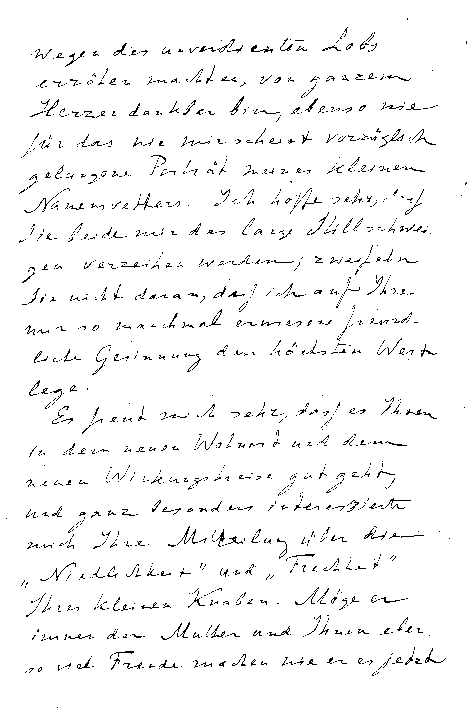 wegen des unverdienten Lobs
erröten machten, von ganzem
Herzen dankbar bin, ebenso wie
für das wie mir scheint vorzüglich
gelungene Porträt meines kleinen
Namensvetters. Ich hoffe sehr, daß
Sie beide mir das lange Stillschwei
gen verzeihen werden; zweifeln
Sie nicht daran, daß ich auf Ihre
mir so manchmal erwiesene freund-
liche Gesinnung den höchsten Wert
lege.
Es freut mich sehr, daß es Ihnen
in dem neuen Wohnort und dem
neuen Wirkungskreise gut geht,
und ganz besonders interessierte
mich Ihre Mitteilung über die
„Niedlichkeit" und „Frechheit"
Ihres kleinen Knaben. Möge er
immer der Mutter und Ihnen eben
so viel Freude machen wie er es jetzt